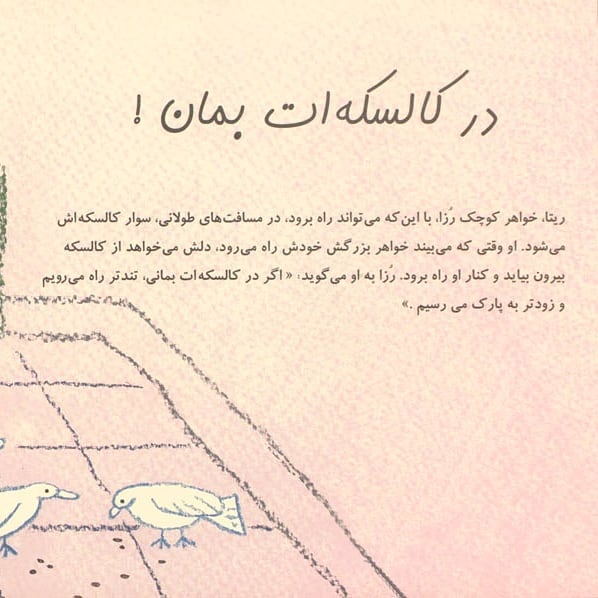 در کالسکه‌ات بمان !
ریتا، خواهر کوچک رُزا، با این‌که می‌تواند راه برود، در مسافت‌های طولانی، سوار کالسکه‌اش
می‌شود. او وقتی که می‌بیند خواهر بزرگش خودش راه می‌رود، دلش می‌خواهد از کالسکه
بیرون بیاید و کنار او راه برود. رُزا به او می‌گوید: « اگر در کالسکه‌ات بمانی، تندتر راه می‌رویم
و زودتر به پارک می رسیم .»